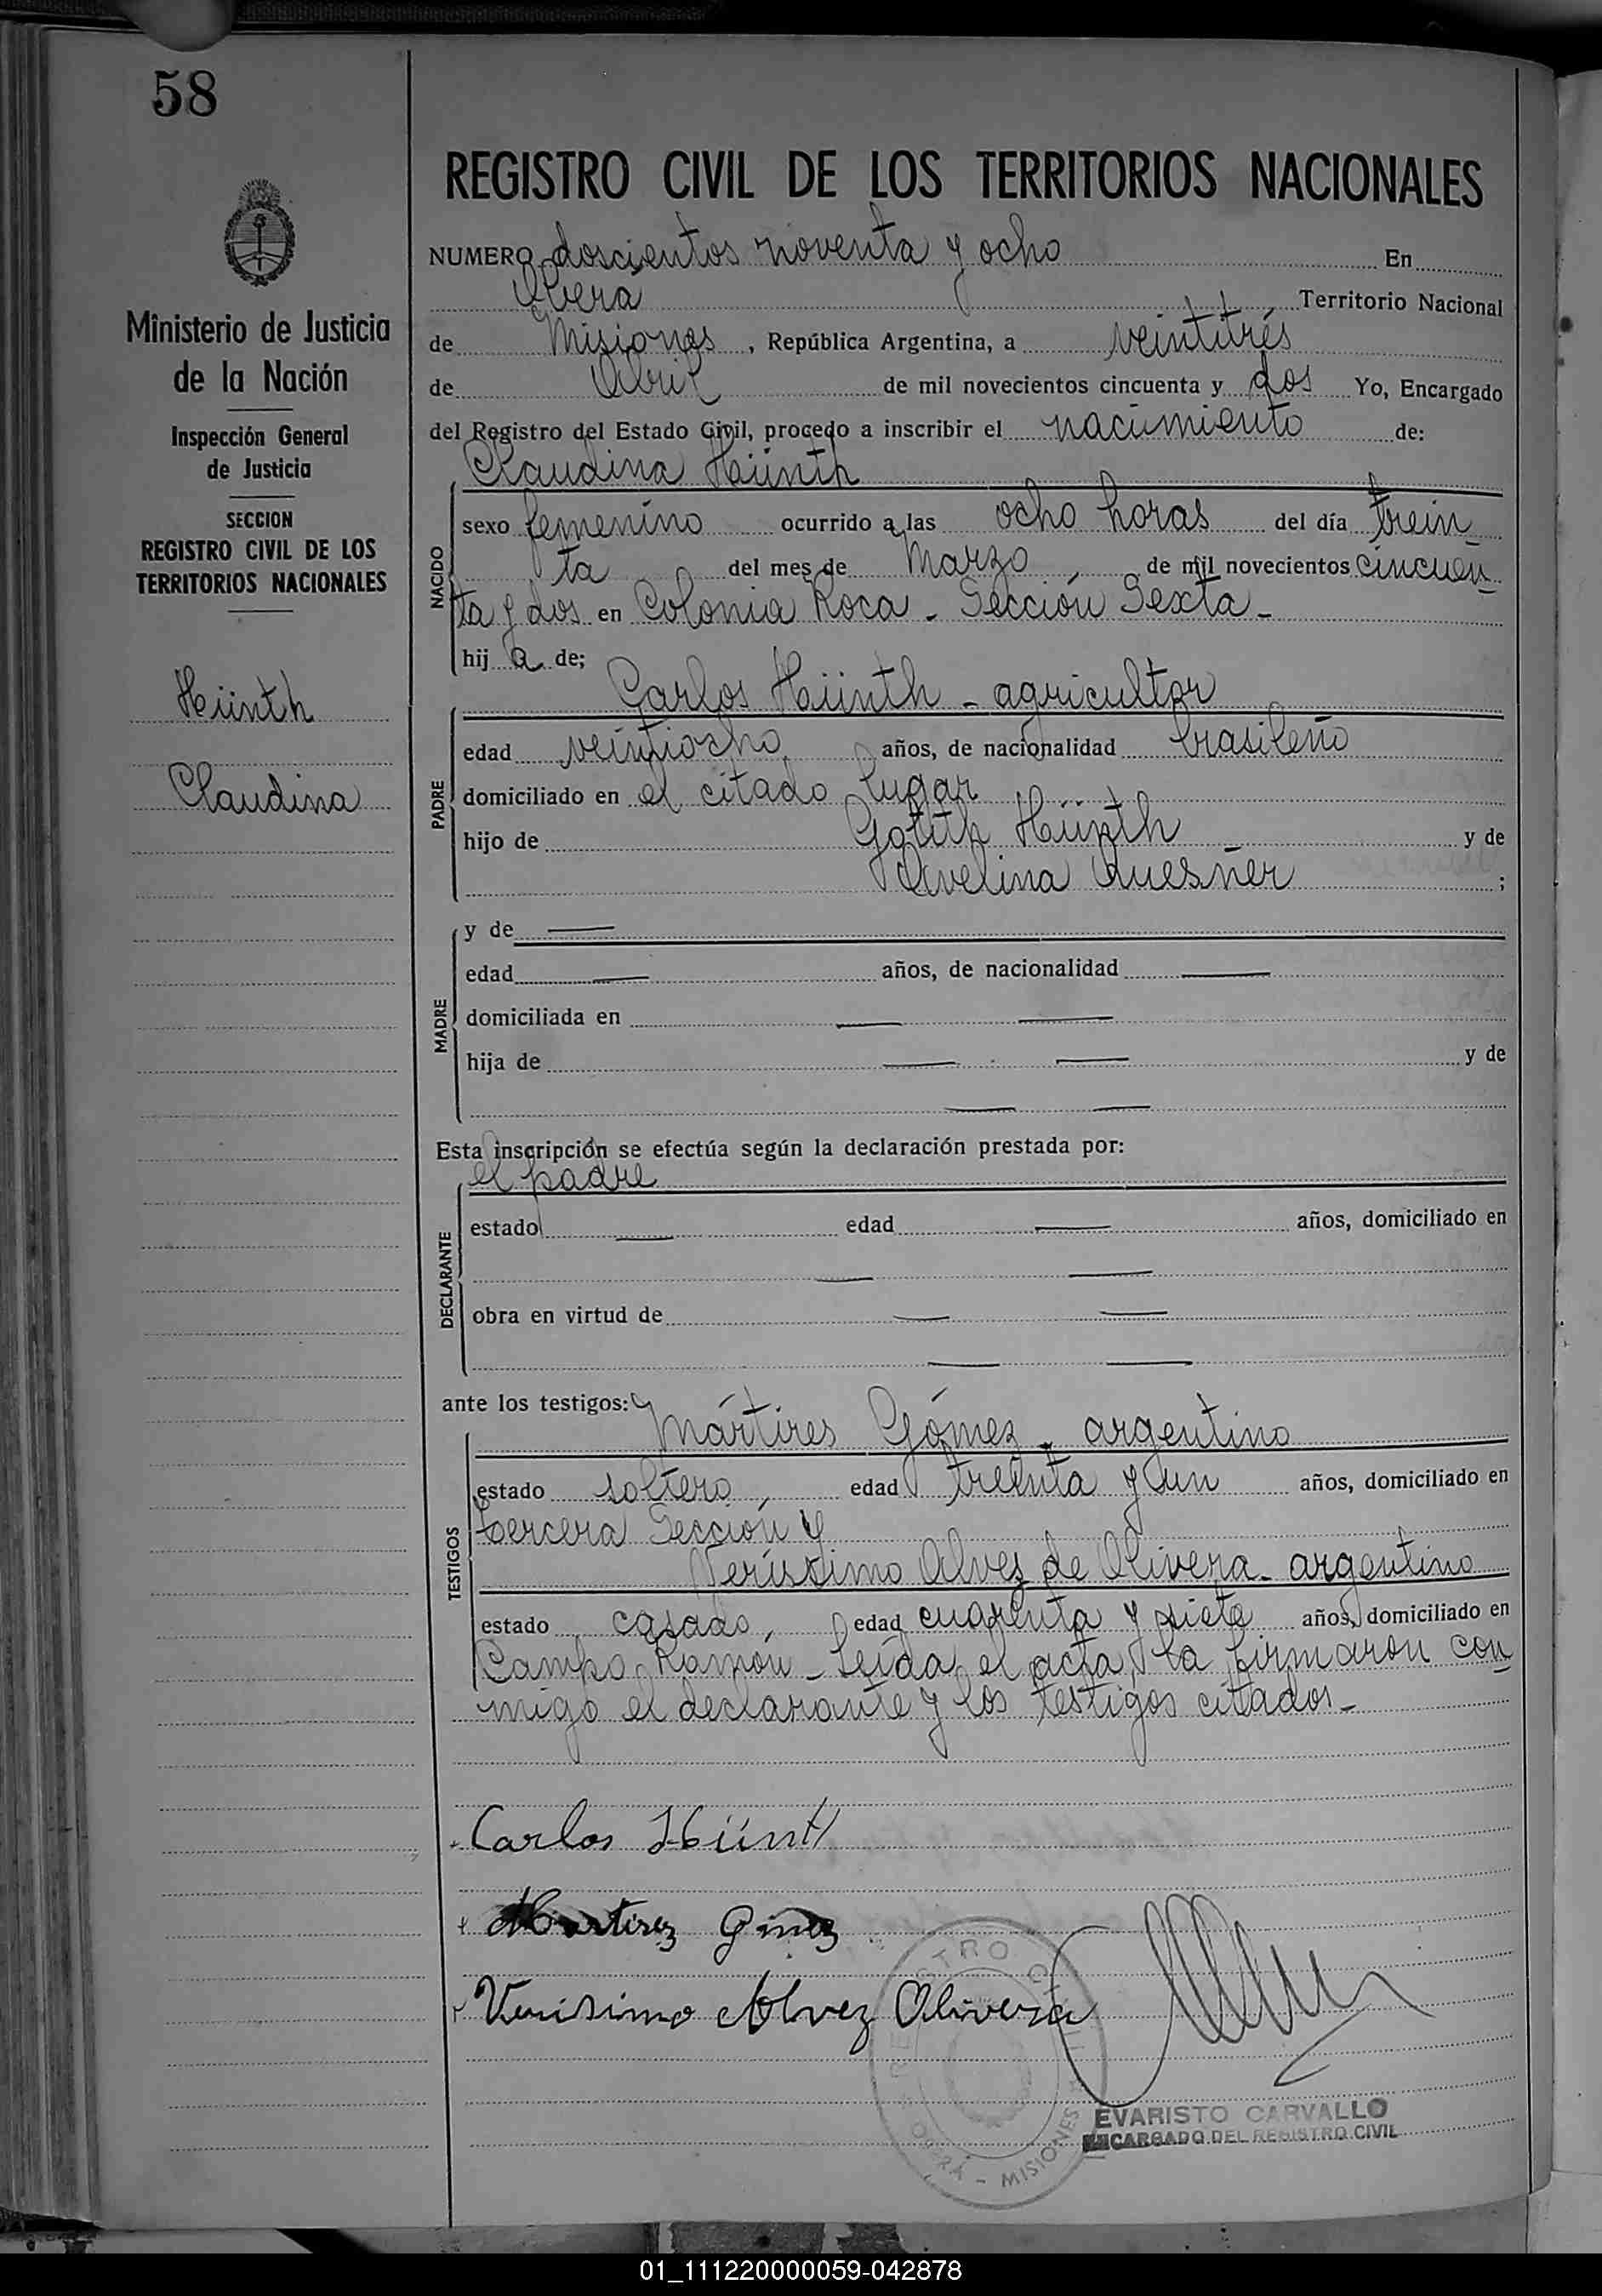 58
REGISTRO CIVIL DE LOS TERRITORIOS NACIONALES
Ministerio de Justicia
de la Nación
Inspección General
de Justicia
SECCION
REGISTRO CIVIL DE LOS
TERRITORIOS NACIONALES
Hünth
Claudina
NUMERO doscientos noventa y ocho En
Oberá Territorio Nacional
de Misiones, República Argentina, a veintitrés
de Abril de mil novecientos cincuenta y dos Yo, Encargado
del Registro del Estado Civil, procedo a inscribir el nacimiento de:
Claudina Hünth
NACIDO
sexo femenino ocurrido a las ocho horas del día trein
ta del mes de Marzo de mil novecientos cincuen
ta y dos en Colonia Roca - Sección Sexta -
hij a de;
Carlos Hünth - agricultor
PADRE
edad veintiocho años, de nacionalidad brasileño
domiciliado en el citado lugar
hijo de Hünth y de
Avelina ;
MADRE
y de —
edad — años, de nacionalidad —
domiciliada en — —
hija de — — y de
— —
Esta inscripción se efectúa según la declaración prestada por:
el padre
DECLARANTE
estado — edad — años, domiciliado en
— —
obra en virtud de — —
— —
ante los testigos:
Mártires Gómez - argentino
TESTIGOS
estado soltero, edad treinta y un años, domiciliado en
tercera Sección y
Veríssimo Alvez de Olivera - argentino
estado casado, edad cuarenta y siete años, domiciliado en
Campo Ramón - Leída el acta, la firmaron con
migo el declarante y los testigos citados -
Carlos Hünth
Martirez Gmez
Verisimo Alvez Olivera
REGISTRO CIVIL
OBERÁ - MISIONES
EVARISTO CARVALLO
ENCARGADO DEL REGISTRO CIVIL
01_111220000059-042878